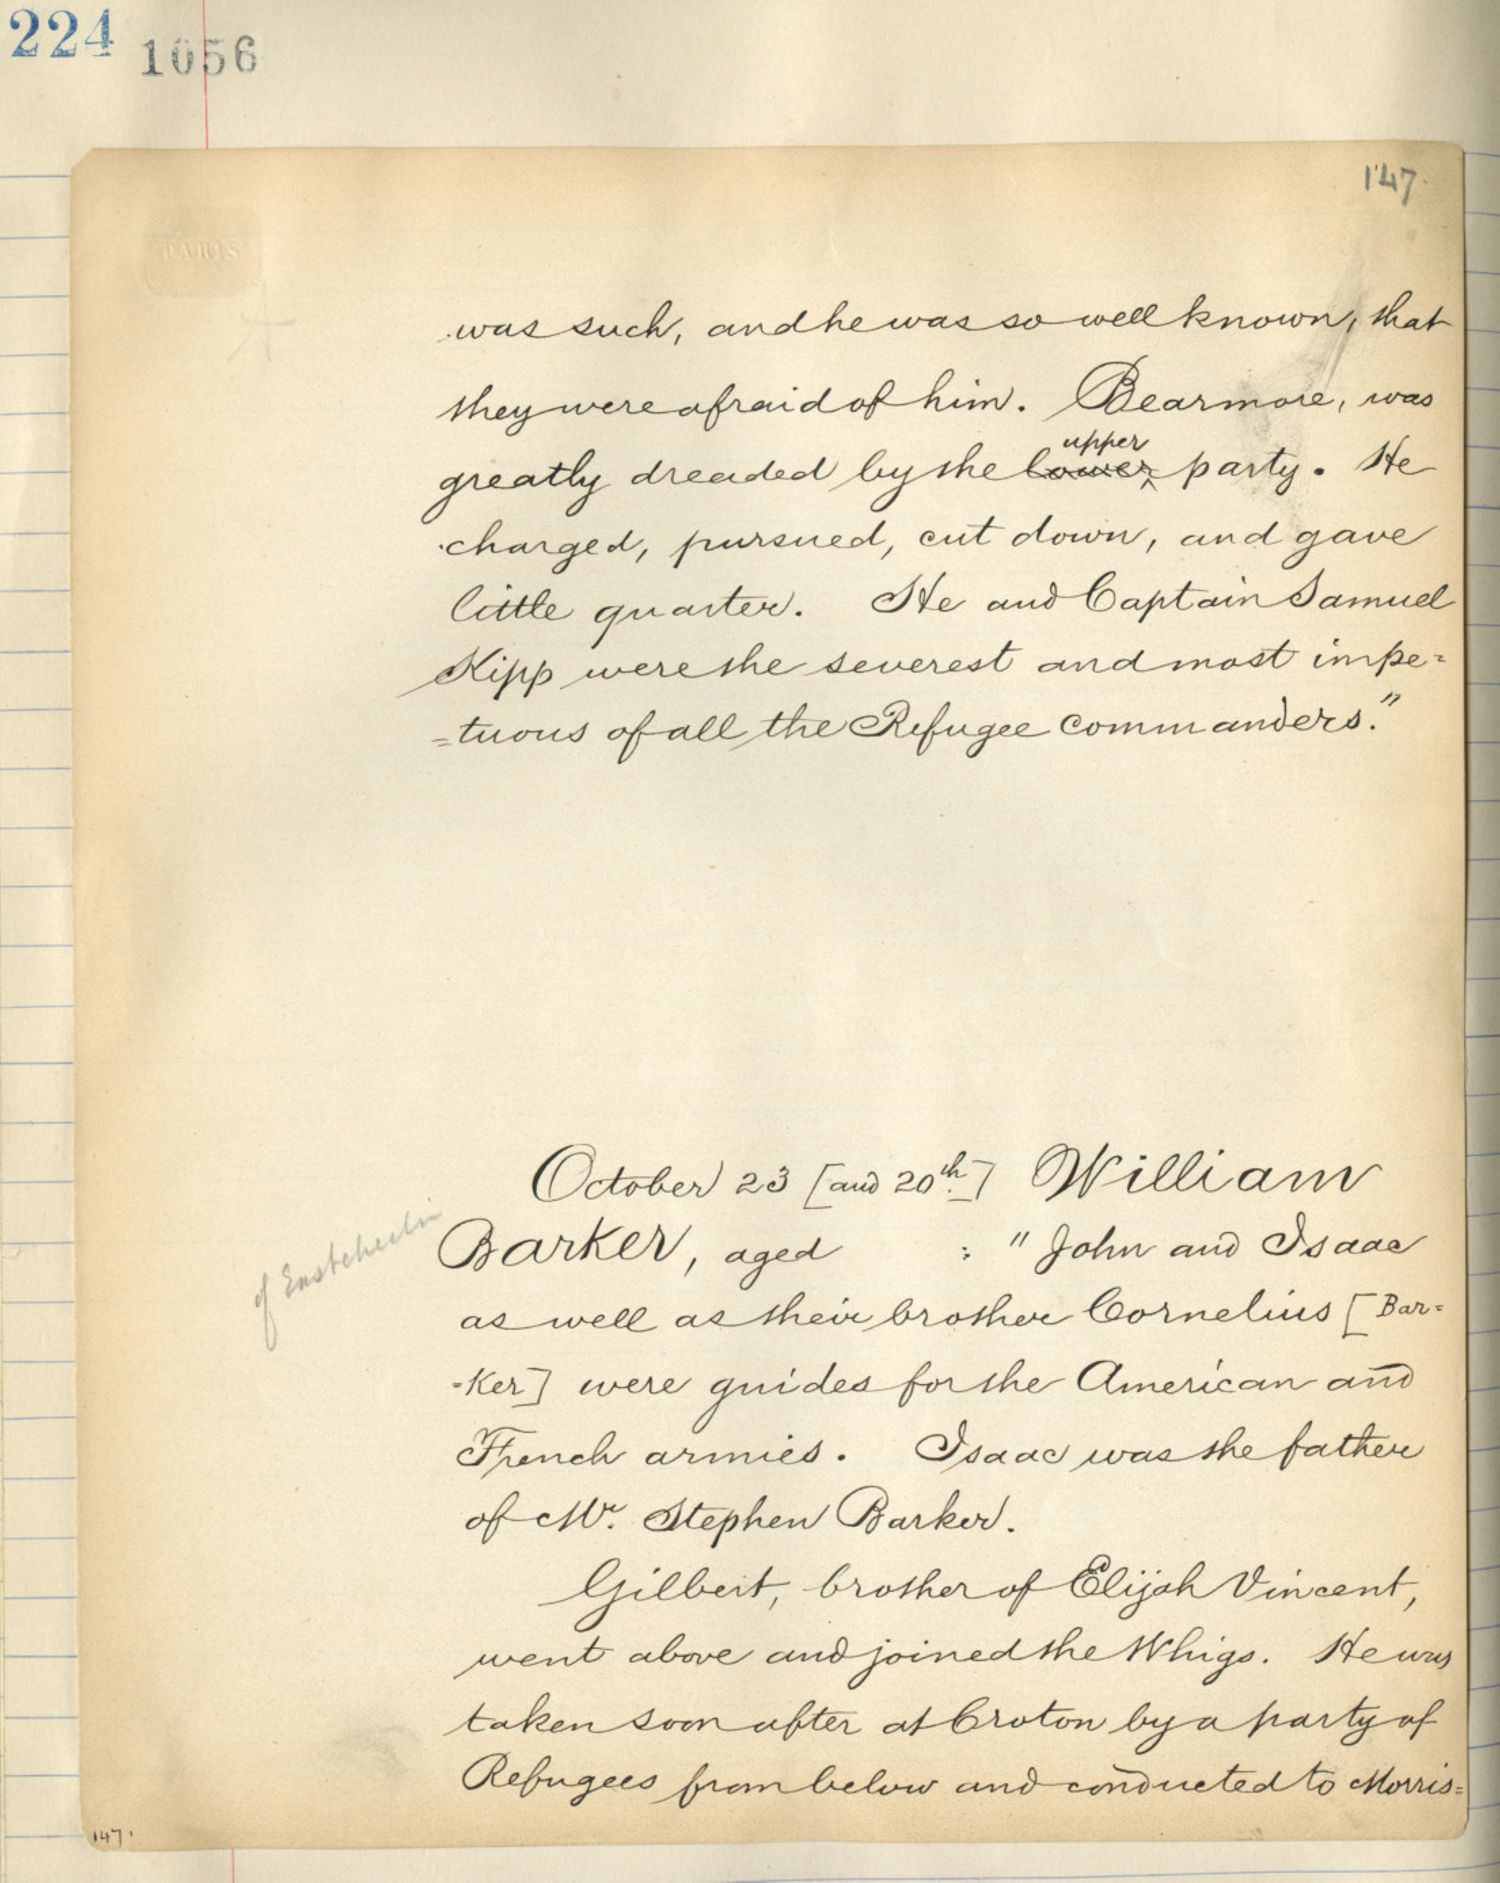 224 1056
147.
PARIS
was such, and he was so well known, that
they were afraid of him. Bearmore, was
upper
greatly dreaded by the lower party. He
charged, pursued, cut down, and gave
little quarter. He and Captain Samuel
Kipp were the severest and most impe=
=tuous of all the Refugee commanders."
October 23 [and 20th.] William
Barker, aged : "John and Isaac
as well as their brother Cornelius [Bar=
-ker] were guides for the American and
French armies. Isaac was the father
of Mr. Stephen Barker.
of Eastchester
Gilbert, brother of Elijah Vincent,
went above and joined the Whigs. He was
taken soon after at Croton by a party of
Refugees from below and conducted to Morris=
147.